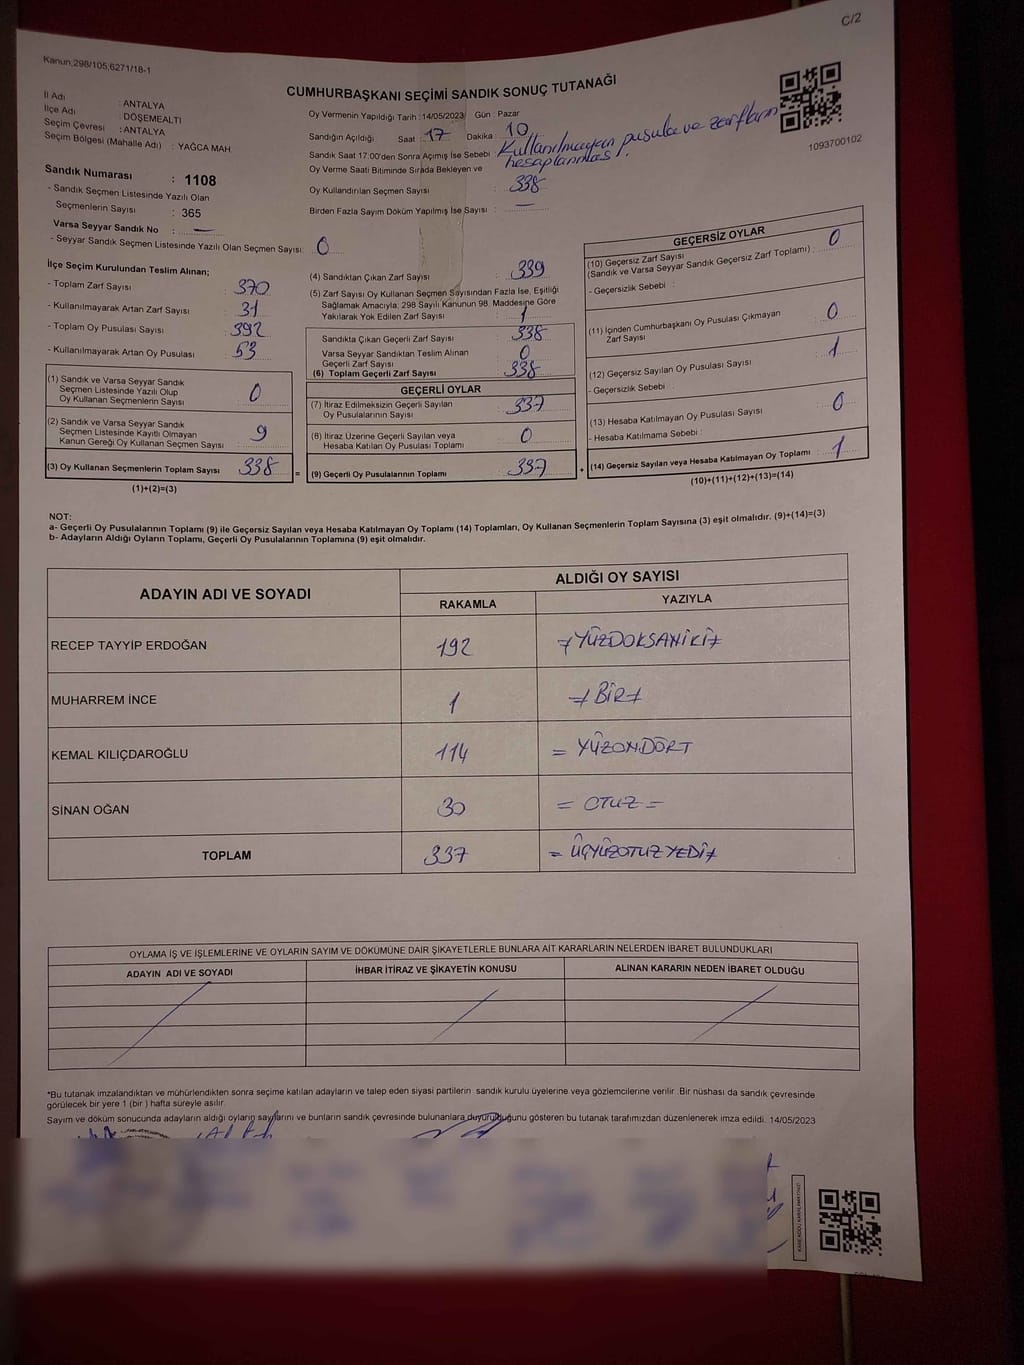 C/2
Kanun,298/105,6271/18-1
CUMHURBAŞKANI SEÇİMİ SANDIK SONUÇ TUTANAĞI
İl Adı : ANTALYA
İlçe Adı : DÖŞEMEALTI
Seçim Çevresi : ANTALYA
Seçim Bölgesi (Mahalle Adı) : YAĞCA MAH.
Sandık Numarası : 1108
- Sandık Seçmen Listesinde Yazılı Olan
Seçmenlerin Sayısı : 365
Varsa Seyyar Sandık No : —
- Seyyar Sandık Seçmen Listesinde Yazılı Olan Seçmen Sayısı: 0
Oy Vermenin Yapıldığı Tarih : 14/05/2023 Gün : Pazar
Sandığın Açıldığı Saat : 17 Dakika : 10
Sandık Saat 17:00'den Sonra Açımış İse Sebebi : Kullanılmayan pusula ve zarfların
hesaplanması.
Oy Verme Saati Bitiminde Sırada Bekleyen ve
Oy Kullandırılan Seçmen Sayısı : 338
Birden Fazla Sayım Döküm Yapılmış İse Sayısı : —
1093700102
İlçe Seçim Kurulundan Teslim Alınan;
- Toplam Zarf Sayısı : 370
- Kullanılmayarak Artan Zarf Sayısı : 31
- Toplam Oy Pusulası Sayısı : 392
- Kullanılmayarak Artan Oy Pusulası : 53
(1) Sandık ve Varsa Seyyar Sandık
Seçmen Listesinde Yazılı Olup
Oy Kullanan Seçmenlerin Sayısı : 0
(2) Sandık ve Varsa Seyyar Sandık
Seçmen Listesinde Kayıtlı Olmayan
Kanun Gereği Oy Kullanan Seçmen Sayısı : 9
(3) Oy Kullanan Seçmenlerin Toplam Sayısı : 338
(1)+(2)=(3)
(4) Sandıktan Çıkan Zarf Sayısı : 339
(5) Zarf Sayısı Oy Kullanan Seçmen Sayısından Fazla İse, Eşitliği
Sağlamak Amacıyla, 298 Sayılı Kanunun 98. Maddesine Göre
Yakılarak Yok Edilen Zarf Sayısı : 1
Sandıkta Çıkan Geçerli Zarf Sayısı : 338
Varsa Seyyar Sandıktan Teslim Alınan
Geçerli Zarf Sayısı : 0
(6) Toplam Geçerli Zarf Sayısı : 338
GEÇERLİ OYLAR
(7) İtiraz Edilmeksizin Geçerli Sayılan
Oy Pusulalarının Sayısı : 337
(8) İtiraz Üzerine Geçerli Sayılan veya
Hesaba Katılan Oy Pusulası Toplamı : 0
= (9) Geçerli Oy Pusulalarının Toplamı : 337 +
GEÇERSİZ OYLAR
(10) Geçersiz Zarf Sayısı
(Sandık ve Varsa Seyyar Sandık Geçersiz Zarf Toplamı) : 0
- Geçersizlik Sebebi :
(11) İçinden Cumhurbaşkanı Oy Pusulası Çıkmayan
Zarf Sayısı : 0
(12) Geçersiz Sayılan Oy Pusulası Sayısı : 1
- Geçersizlik Sebebi :
(13) Hesaba Katılmayan Oy Pusulası Sayısı : 0
- Hesaba Katılmama Sebebi :
(14) Geçersiz Sayılan veya Hesaba Katılmayan Oy Toplamı : 1
(10)+(11)+(12)+(13)=(14)
NOT:
a- Geçerli Oy Pusulalarının Toplamı (9) ile Geçersiz Sayılan veya Hesaba Katılmayan Oy Toplamı (14) Toplamları, Oy Kullanan Seçmenlerin Toplam Sayısına (3) eşit olmalıdır. (9)+(14)=(3)
b- Adayların Aldığı Oyların Toplamı, Geçerli Oy Pusulalarının Toplamına (9) eşit olmalıdır.
ADAYIN ADI VE SOYADI ALDIĞI OY SAYISI
RAKAMLA YAZIYLA
RECEP TAYYİP ERDOĞAN 192 YÜZDOKSANİKİ
MUHARREM İNCE 1 BİR
KEMAL KILIÇDAROĞLU 114 = YÜZONDÖRT
SİNAN OĞAN 30 = OTUZ =
TOPLAM 337 = ÜÇYÜZOTUZYEDİ
OYLAMA İŞ VE İŞLEMLERİNE VE OYLARIN SAYIM VE DÖKÜMÜNE DAİR ŞİKAYETLERLE BUNLARA AİT KARARLARIN NELERDEN İBARET BULUNDUKLARI
ADAYIN ADI VE SOYADI İHBAR İTİRAZ VE ŞİKAYETİN KONUSU ALINAN KARARIN NEDEN İBARET OLDUĞU
*Bu tutanak imzalandıktan ve mühürlendikten sonra seçime katılan adayların ve talep eden siyasi partilerin sandık kurulu üyelerine veya gözlemcilerine verilir. Bir nüshası da sandık çevresinde
görülecek bir yere 1 (bir ) hafta süreyle asılır.
Sayım ve döküm sonucunda adayların aldığı oyların sayılarını ve bunların sandık çevresinde bulunanlara duyurulduğunu gösteren bu tutanak tarafımızdan düzenlenerek imza edildi. 14/05/2023